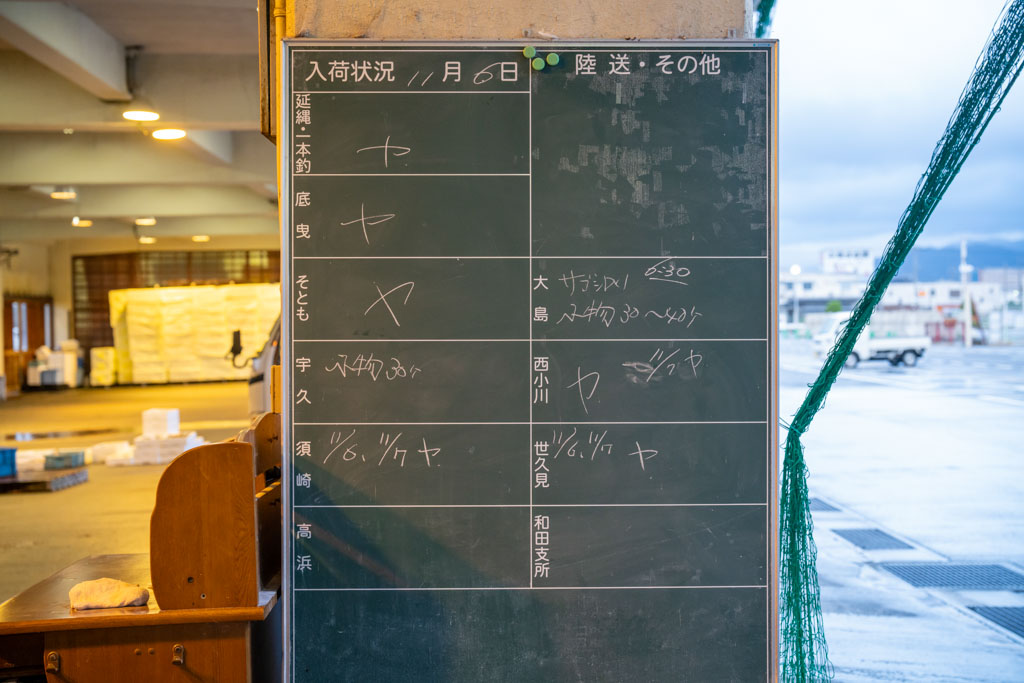 入荷状況 11月6日
陸送・その他
延縄・一本釣
ヤ
底曳
ヤ
そとも
ヤ
大島
6:30
30〜40ケ
宇久
小物30ケ
西小川
ヤ
11/7ヤ
須崎
11/6、11/7ヤ
世久見
11/6、11/7ヤ
高浜
和田支所